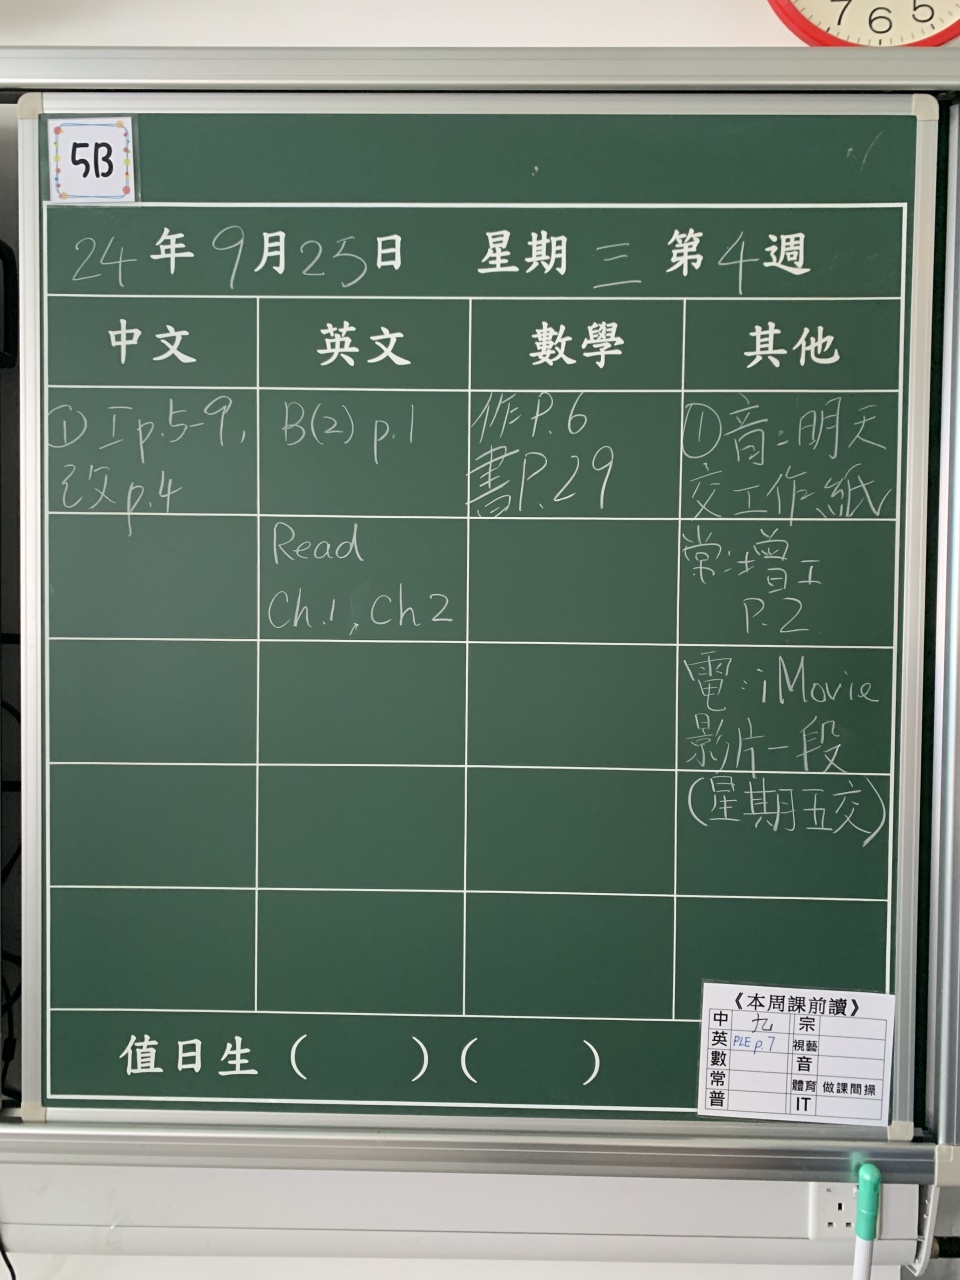 7 6 5
5B
24年9月25日 星期三 第4週
中文 英文 數學 其他
①工p.5-9,
改p.4
B(2) p.1
作P.6
書P.29
①音：明天
交工作紙
Read
Ch.1, Ch 2
常：增工
P.2
電：iMovie
影片一段
(星期五交)
值日生( )( )
《本周課前讀》
中 九 宗
英 PLE p.7 視藝
數 音
常 體育 做課間操
普 IT